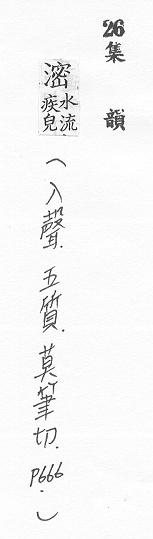 26集韻
滵水流疾皃
（入聲．五質．莫筆切．P666．）